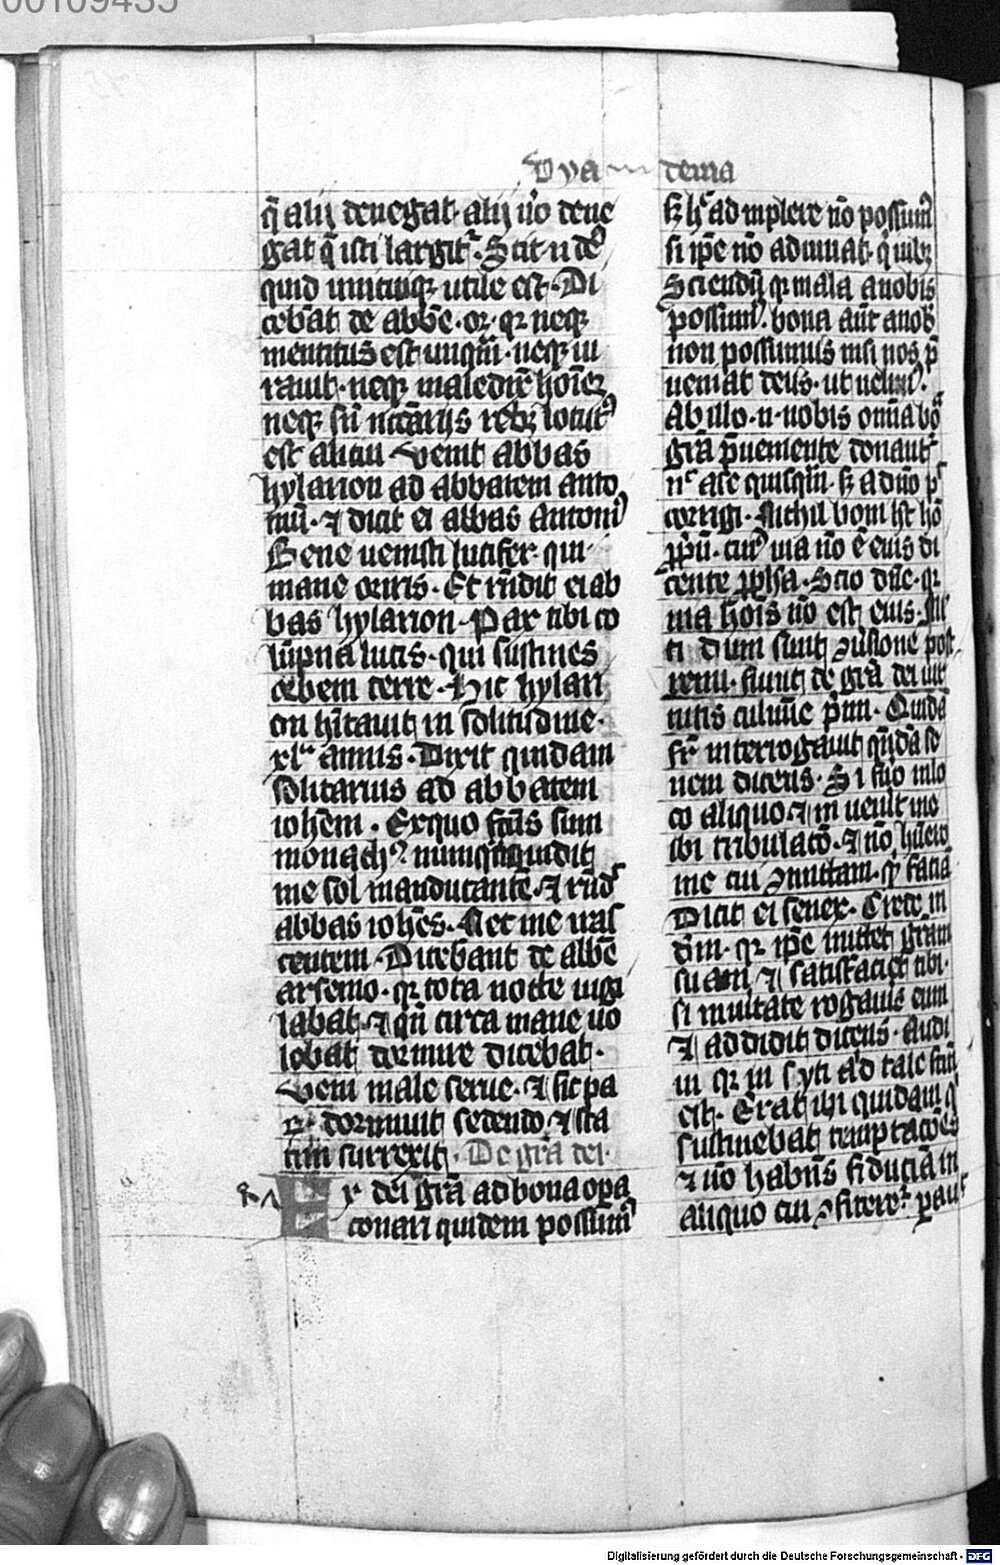 00109435
Dya dema
q̄ alij denegat· alij ūo dene
gat q̄ isti largit᷑· Scit n̄ de᷒
quid unicuiqꝫ utile est· Di
cebāt de abbē· or· qꝛ neqꝫ
mentitus est unqm̄· neqꝫ iu
rauit· neqꝫ maledix̄ hoīeꝫ
neqꝫ sn̄ nccārijs rebꝫ locut᷒
est alicui Venit abbas
hylarion ad abbatem anto
niū· ⁊ dicit ei abbas Antoni᷒
Bene uenisti lucifer qui
mane oriris· Et rn̄dit ei ab
bas hylarion· Pax tibi co
lūpna lucis· qui sustines
orbem terre· Hic hylari
on hītauit in solitudine·
xl annis· Dixit quidam
solitarius ad abbatem
iohēm· Exquo fc̄us sum
monach᷒ numqm̄ uidit
me sol manducantē· ⁊ rn̄d
abbas iohēs· Nec me iras
centem· Dicebant de abbē
arsenio· qꝛ tota nocte uigi
labat· ⁊ qn̄ circa mane uo
lebat dormire dicebat·
Veni male serue· ⁊ sic pa
dormiuit sedendo· ⁊ sta
tim surrexit· De grā dei·
x dei grā ad bona opa
conari quidem possum᷒
sꝫ hͨ adinplere nō possum᷒
si ipē nō adiuuat· qibꝫ
Sciendū qꝛ mala a nobis
possum᷒· bona aūt a nob̄
non possumus nisi nos p̄
ueniat deus· ut uelim᷒·
Ab illo· n· nobis omīa bo
grā p̄ueniente donant᷑
quisqm̄· sꝫ a dn̄o
corrigi· Nichil boni hꝫ ho
ꝓpū· cui᷒ uia nō ē eius di
cente ꝓpha· Scio dn̄e· qꝛ
uia hoīs nō est eius·
ti dum sunt ꝯuersione post
remi· fiunt de grā dei uir
tutis culmīe p̄mi· Quidā
fr̄ interrogauit quendā se
nem dicens· Si fuo in lo
co aliquo ⁊ in uenit me
ibi tribulatō· ⁊ nō huēro
me cui ꝯmittam· facia
Dicit ei senex· Crede in
dm̄· qꝛ ipē mittet gram
suam ⁊ satisfaciet tibi·
si in uitate rogauis eum
⁊ addidit dicens· Audi
ui qꝛ in scyti ad tale fc̄m
est· Erat ibi quidam q
sustinebat temptacōes
⁊ nō habēs fiduciā in
aliquo cui ꝯfiteret᷑
Digitalisierung gefördert durch die Deutsche Forschungsgemeinschaft - DFG